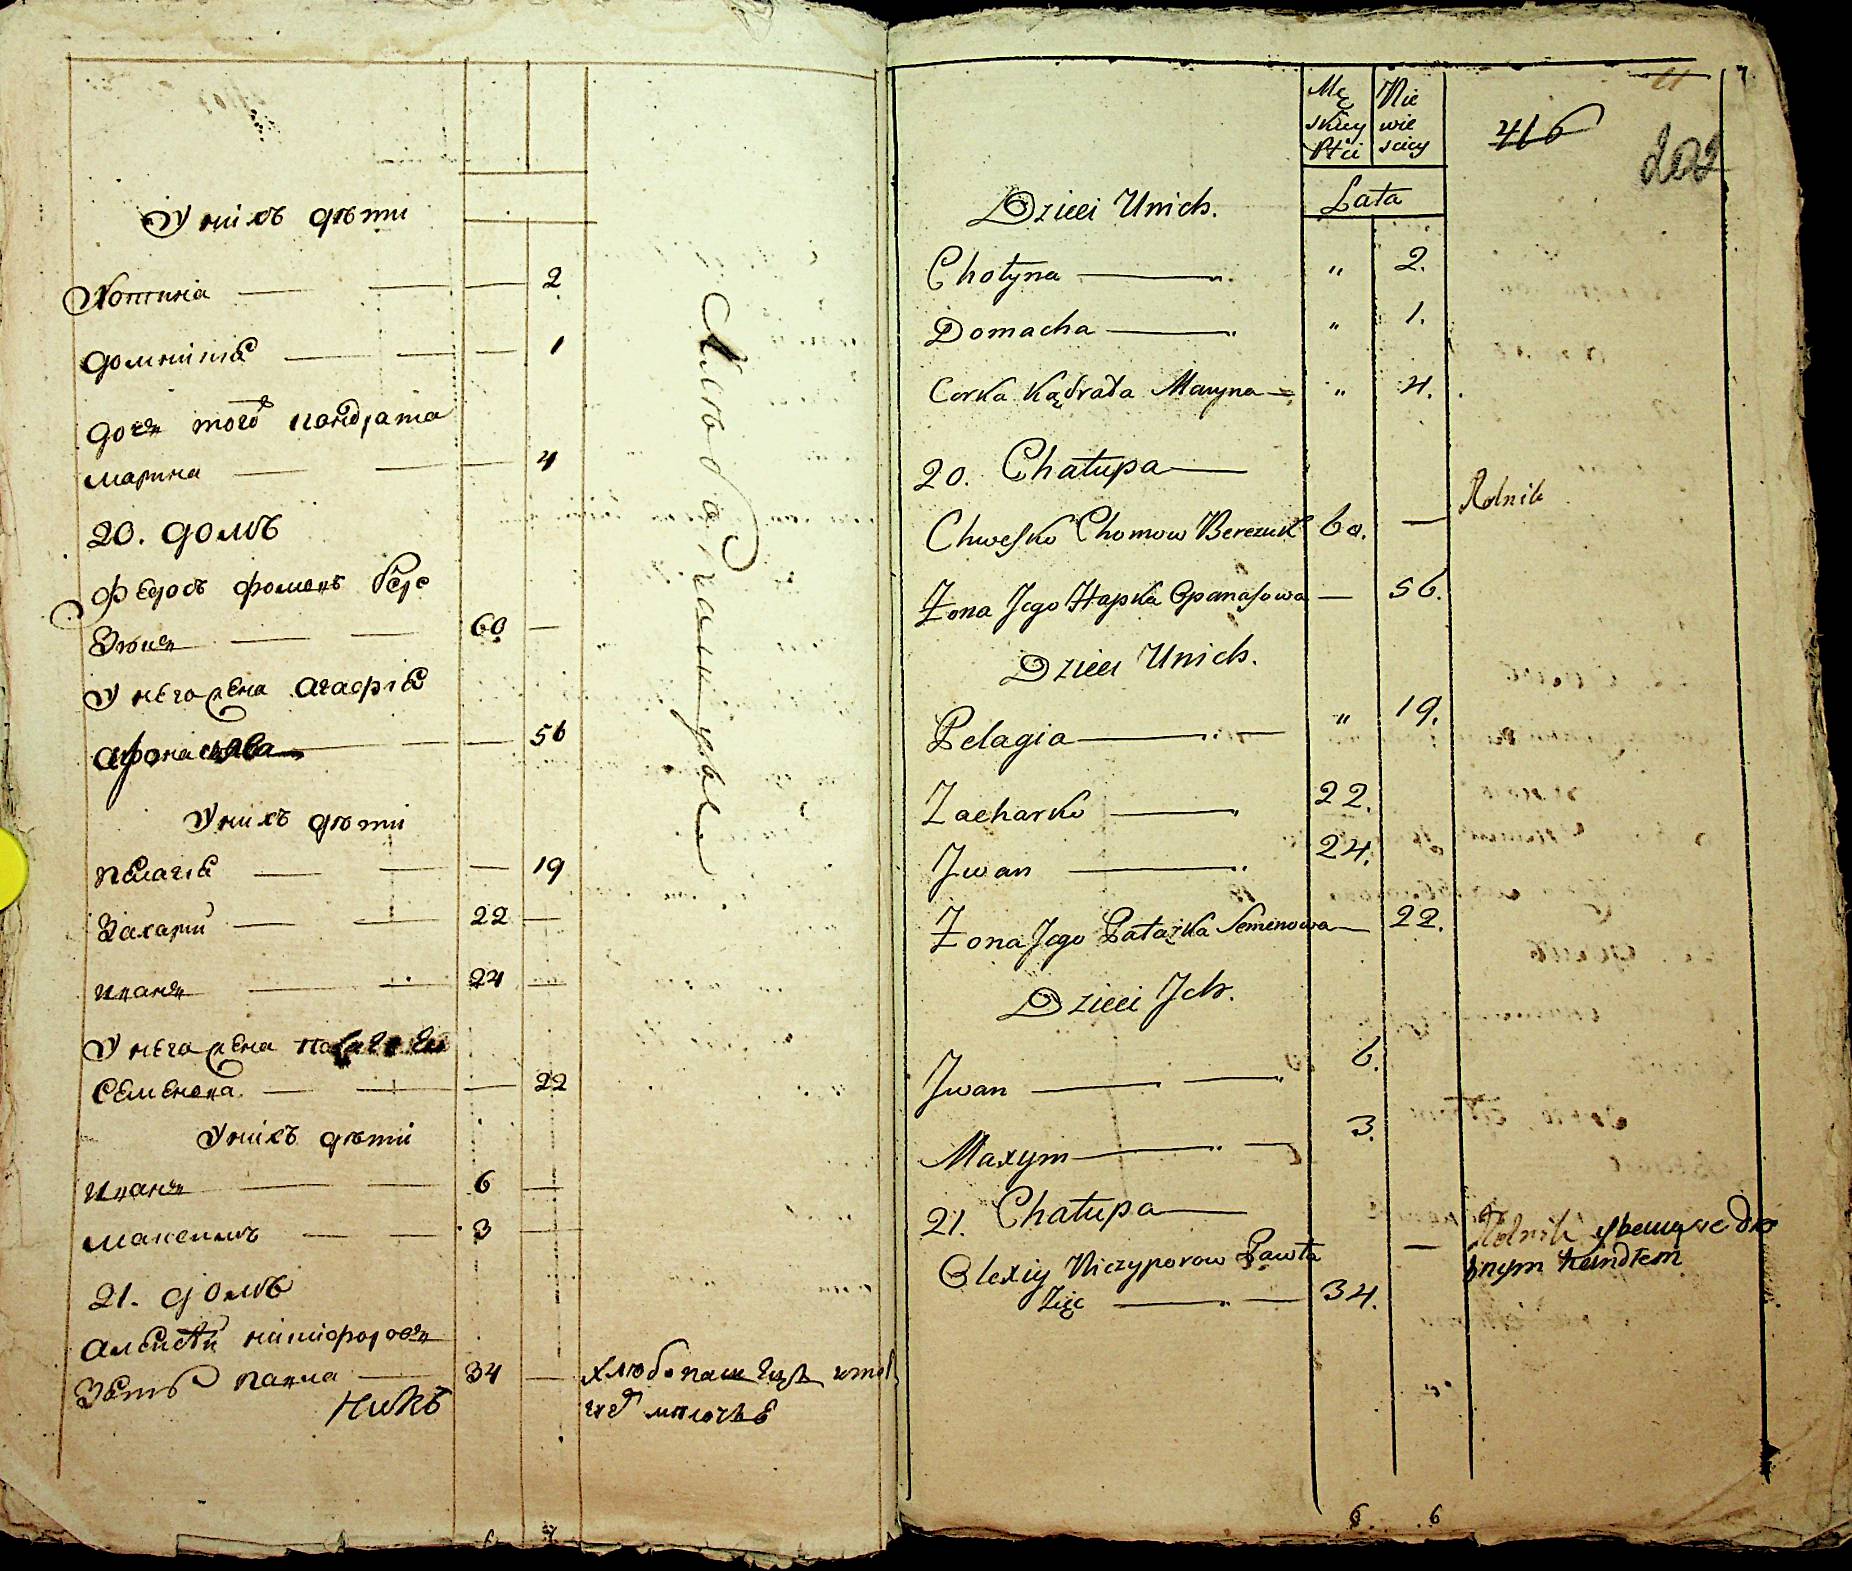 У нихъ дѣти
Хотина 2
Домникiя 1
дочь того кондрата
марина 4
20. домъ
Федосъ фоминъ Бере
зюкъ 60
У него жена агафiя
афонасьева 56
У нихъ дѣти
пелагiя 19
Захарiй 22
иванъ 24
У него жена
семенова 22
У нихъ дѣти
иванъ 6
максимъ 3
21. домъ
алексѣй никифоровъ
зеть павла 34 хлюбопашецъ
никъ
Хлюбопашцы
Mę Nie
skiey wie
Płci sciey
416
202
Lata
Dzieci Unich.
Chotyna " 2.
Domacha " 1.
Corka Kądrata Maryna " 4.
20. Chałupa
Chwesko Chomow Berezuk 60. — Rolnik
Żona Jego Hapka Opanasowa — 56.
Dzieci Unich.
Pelagia " 19.
Zacharko 22.
Jwan 24.
Żona Jego Pałażka Semenowa — 22.
Dzieci Jch.
Jwan 6.
Maxym 3.
21. Chałupa
Olexiy Niczyporow Pawła — Rolnik y bawiący się dro
Zięć 34. bnym handlem
6. 6